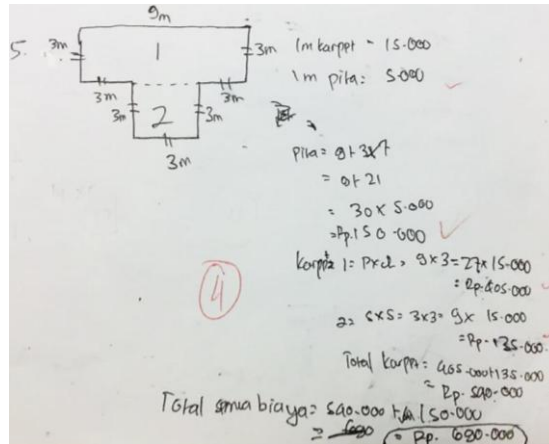 5.
9m
3m 1 3m
3m 3m
3m 2 3m
3m
1m karpet = 15.000
1m pita = 5.000
Pita = 9+3x7
= 9+21
= 30 x 5.000
= Rp. 150.000
4
karpet 1 = Pxl = 9x3 = 27 x 15.000
= Rp. 405.000
2 = SxS = 3x3 = 9 x 15.000
= Rp. 135.000
Total karpet = 405.000+135.000
= Rp. 540.000
Total semua biaya = 540.000 + 150.000
= Rp. 690.000